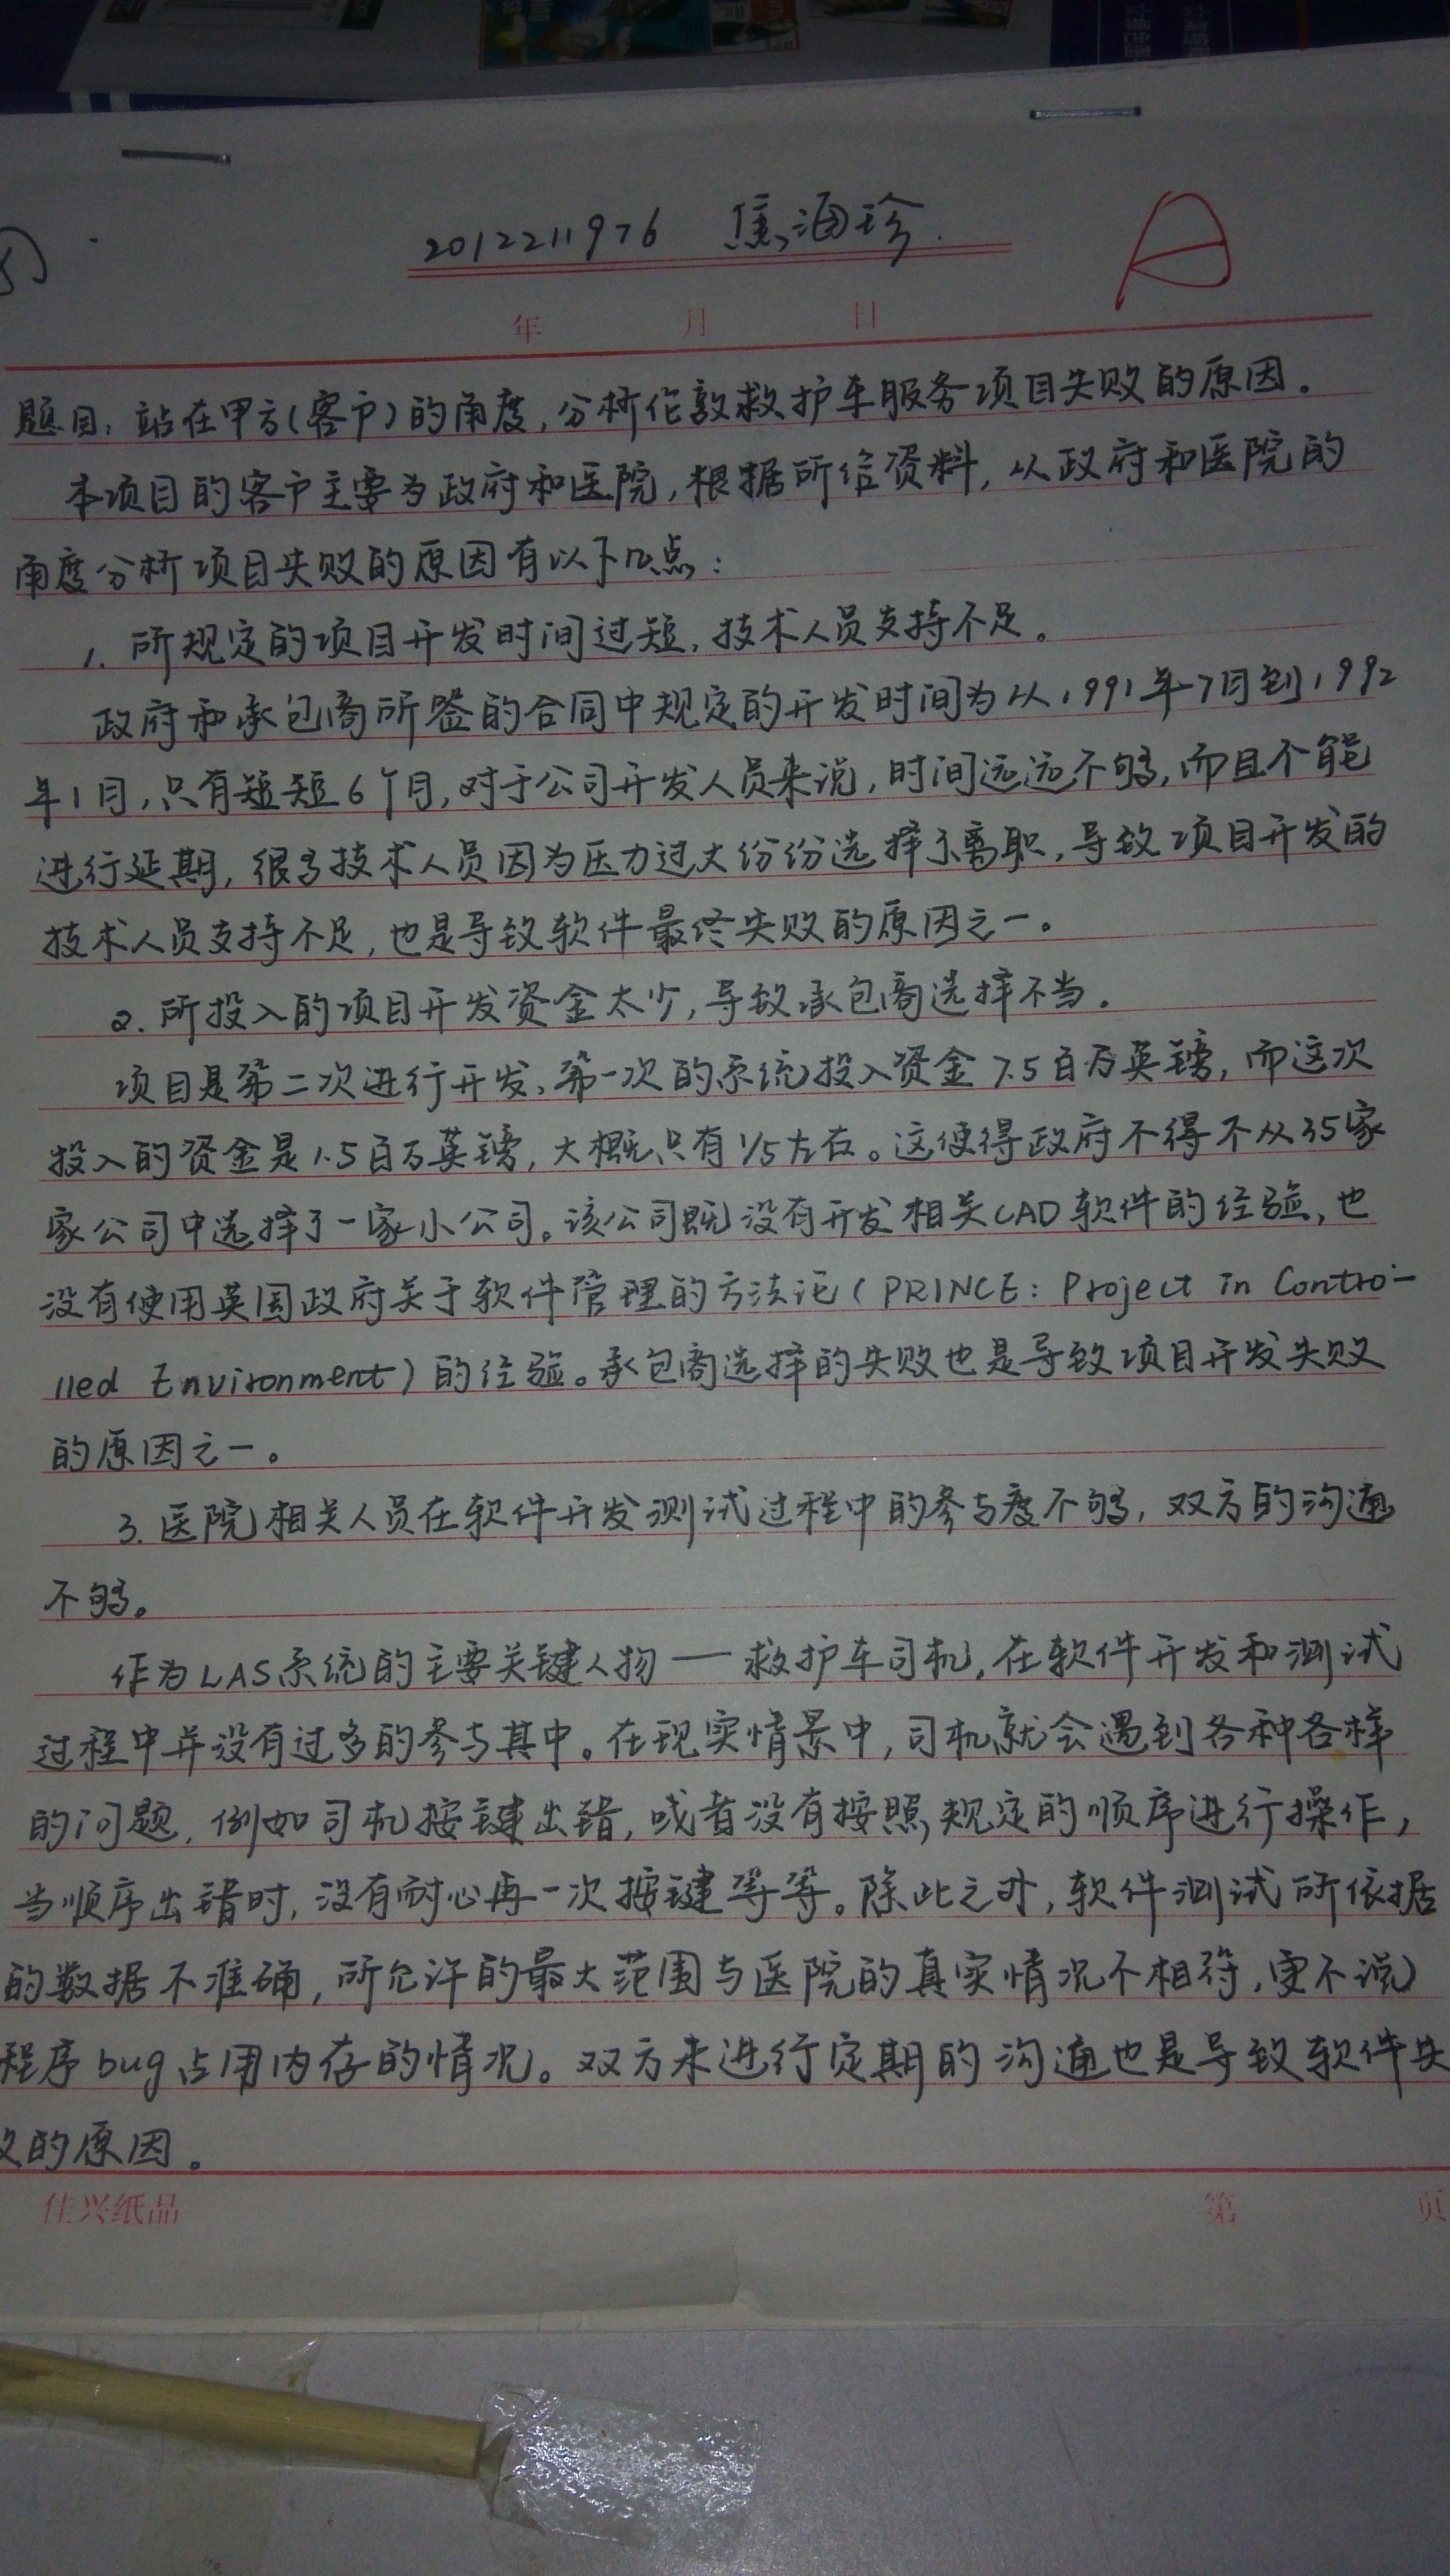 2012211976 焦海珍.
A
年 月 日
题目: 站在甲方(客户)的角度,分析伦敦救护车服务项目失败的原因。
本项目的客户主要为政府和医院,根据所给资料,以政府和医院的
角度分析项目失败的原因有以下几点:
1. 所规定的项目开发时间过短,技术人员支持不足。
政府和承包商所签的合同中规定的开发时间为从1991年7月到1992
年1月,只有短短6个月,对于公司开发人员来说,时间远远不够,而且不能
进行延期,很多技术人员因为压力过大份份选择了离职,导致项目开发的
技术人员支持不足,也是导致软件最终失败的原因之一。
2. 所投入的项目开发资金太少,导致承包商选择不当。
项目是第二次进行开发、第一次的系统投入资金7.5百万英镑,而这次
投入的资金是1.5百万英镑,大概只有1/5左右。这使得政府不得不从35家
家公司中选择了一家小公司。该公司既没有开发相关CAD软件的经验,也
没有使用英国政府关于软件管理的方法论(PRINCE: Project in Contro-
lled Environment)的经验。承包商选择的失败也是导致项目开发失败
的原因之一。
3. 医院相关人员在软件开发测试过程中的参与度不够,双方的沟通
不够。
作为LAS系统的主要关键人物——救护车司机,在软件开发和测试
过程中并没有过多的参与其中。在现实情景中,司机就会遇到各种各样
的问题,例如司机按键出错,或者没有按照规定的顺序进行操作,
当顺序出错时,没有耐心再一次按键等等。除此之外,软件测试所依据
的数据不准确,所允许的最大范围与医院的真实情况不相符,更不说
程序bug占用内存的情况。双方未进行定期的沟通也是导致软件失
败的原因。
佳兴纸品 第 页